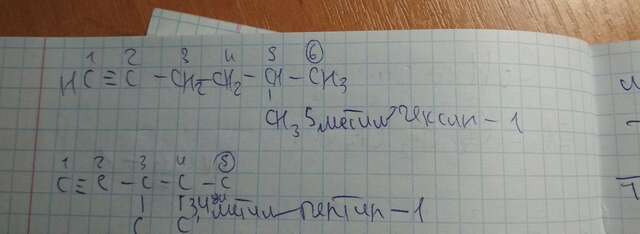 1 2 3 4 5 6
HC≡C-CH2-CH2-CH-CH3
CH3 5метилгексин-1
1 2 3 4 5
C≡C-C-C-C
34диметилпентин-1
C C